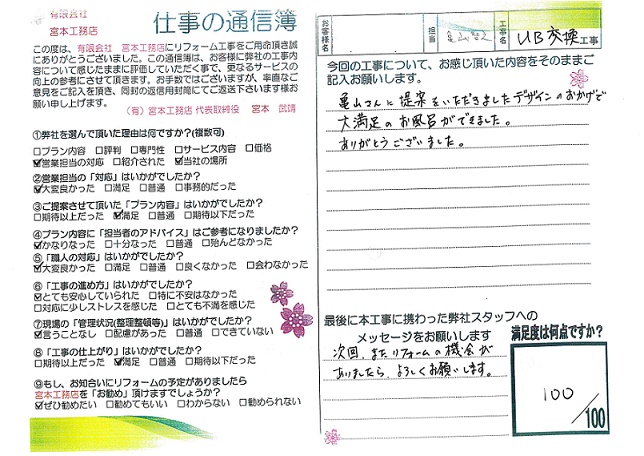 有限会社
宮本工務店
仕事の通信簿
この度は、有限会社 宮本工務店にリフォーム工事をご用命頂き誠
にありがとうございました。この通信簿は、お客様に弊社の工事内
容について感じたままに評価していただく事で、更なるサービスの
向上の参考にさせて頂きます。お手数ではございますが、率直なご
意見をご記入を頂き、同封の返信用封筒にてご返送下さいます様お
願い申し上げます。
(有)宮本工務店 代表取締役 宮本 武靖
①弊社を選んで頂いた理由は何ですか?(複数可)
□プラン内容 □評判 □専門性 □サービス内容 □価格
☑営業担当の対応 □紹介された ☑当社の場所
②営業担当の「対応」はいかがでしたか?
☑大変良かった □満足 □普通 □事務的だった
③ご提案させて頂いた「プラン内容」はいかがでしたか?
□期待以上だった ☑満足 □普通 □期待以下だった
④プラン内容に「担当者のアドバイス」はご参考になりましたか?
☑かなりなった □十分なった □普通 □殆んどなかった
⑤「職人の対応」はいかがでしたか?
☑大変良かった □満足 □普通 □良くなかった □会わなかった
⑥「工事の進め方」はいかがでしたか?
☑とても安心していられた □特に不安はなかった
□対応に少しストレスを感じた □とても不満を感じた
⑦現場の「管理状況(整理整頓等)」はいかがでしたか?
☑言うことなし □配慮があった □普通 □できていない
⑧「工事の仕上がり」はいかがでしたか?
□期待以上だった ☑満足 □普通 □期待以下だった
⑨もし、お知合いにリフォームの予定がありましたら
宮本工務店を「お勧め」頂けますでしょうか?
☑ぜひ勧めたい □勧めてもいい □わからない □勧められない
お客様名
担当
亀山
工事名
UB交換工事
今回の工事について、お感じ頂いた内容をそのままご
記入お願いします。
亀山さんに提案をいただきましたデザインのおかげで
大満足のお風呂ができました。
ありがとうございました。
最後に本工事に携わった弊社スタッフへの
メッセージをお願いします
次回、またリフォームの機会が
ありましたら、よろしくお願いします。
満足度は何点ですか?
100/100